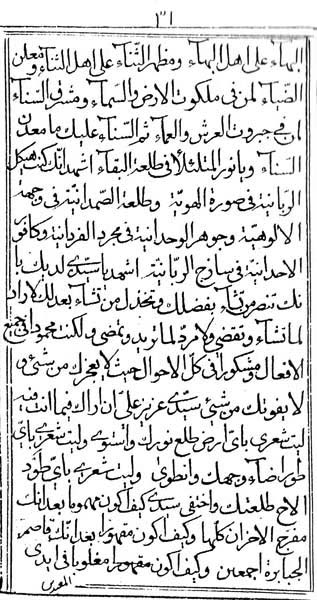 ١٣١
البهاء على اهل البهاء ومظهر الثناء على اهل الثناء ومعلن
الضياء لمن في ملكوت الارض والسماء ومشرق السناء
لمن في جبروت العرش والعماء ثم السناء عليك يا معدن
السناء ويا نور المتلئلأ في طلعة البقاء اشهد انك كنت هيكل
الربانية في صورة الهوية وطلعة الصمدانية في وجهة
الالوهية وجوهر الوحدانية في مجرد الفردانية وكافور
الاحدانية في ساذج الربانية اشهد يا سيدي لديك با
نك تنصر من تشاء بفضلك وتخذل من تشاء بعدلك لا راد
لما تشاء وتقضي ولا مرد لما تريد وتمضي ولكنت محمودا في جميع
الافعال ومشكورا في كل الاحوال حيث لا يعجزك من شئ و
لا يفوتك من شئ سيدي عزيز علي ان اراك فيما انت فيه
ليت شعري باي ارض طلع نورك واستوى وليت شعري باي
طور اضاء وجهك وانطوى وليت شعري باي طود
الاح طلعتك واختفى سيدي كيف اكون مهموما بعد انك
مفرج الاحزان كلها وكيف اكون مقهورا بعد انك قاصم
الجبابرة اجمعين وكيف اكون مقهورا مغلوبا في ايدي